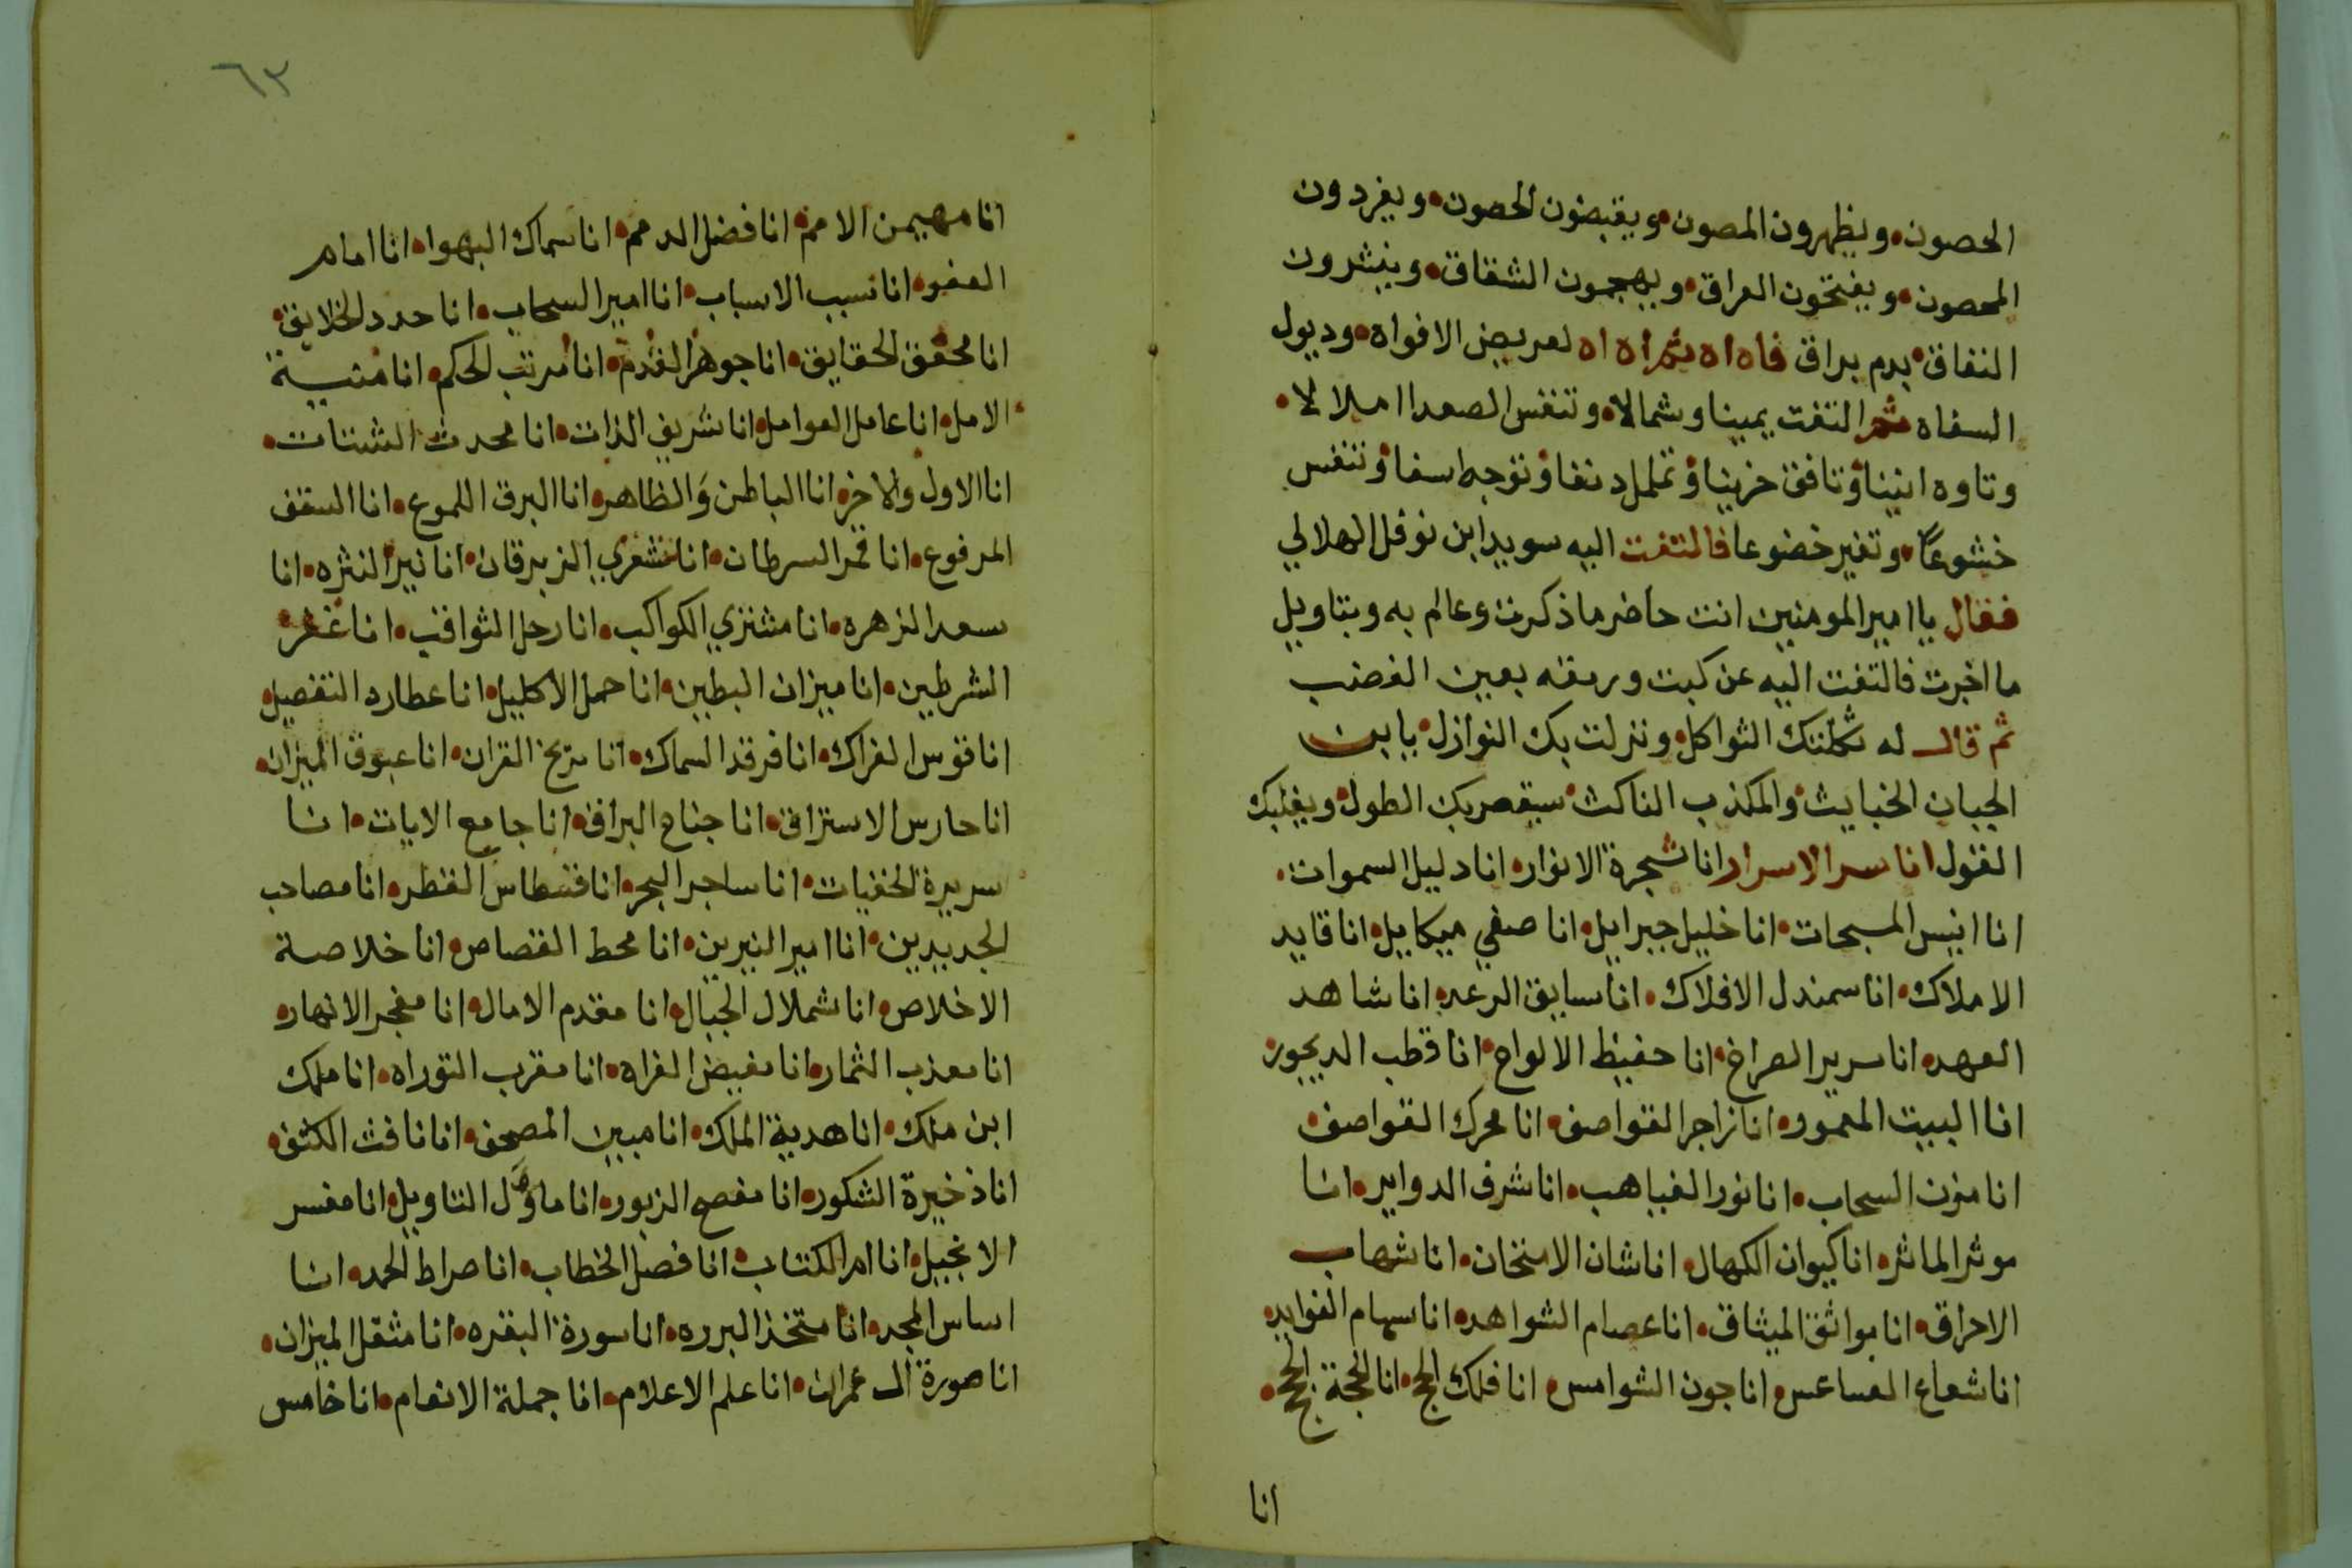 الحصون • ويظهرون المصون • ويقبضون الحصون • ويفردون
المحصون • ويفتحون العراق • ويهجمون الشقاق • وينشرون
النفاق • بدم يراق فاه اه ثم اه اه لعريض الافواه • وديول
السفاه ثم التفت يمينا وشمالا • وتنفس الصعدا املالا •
وتاوه انينا • وتافق حزينا • وتململ دنفا • وتوجه اسفا • وتنفس
خشوعا • وتغير خضوعا فالتفت اليه سويد ابن نوفل الهلالي
فقال يا امير المومنين انت حاضر ما ذكرت وعالم به وبتاويل
ما اخبرت فالتفت اليه عن كبت ورمقه بعين الغضب
ثم قال له ثكلتك الثواكل • ونزلت بك النوازل • يا بن
الجبان الخبايث • والمكذب الناكث • سيقصر بك الطول • ويغلبك
القول انا سر الاسرار انا شجرة الانوار • انا دليل السموات •
انا انيس المسبحات • انا خليل جبرايل • انا صفي ميكايل • انا قايد
الاملاك • انا سمندل الافلاك • انا سايق الرعد • انا شاهد
العهد • انا سرير الصراخ • انا حفيظ الالواح • انا قطب الديجور •
انا البيت المعمور • انا زاجر القواصف • انا محرك القواصف •
انا مزن السحاب • انا نور الغياهب • انا شرف الدواير • انا
موثر الماثر • انا كيوان الكهال • انا شان الامتحان • انا شهاب
الاحراق • انا مواثق الميثاق • انا عصام الشواهد • انا سهام الفوايد •
انا شعاع العساعس • انا جون الشوامس • انا فلك الجج • انا الحجة الحجج •
انا
٦٣
انا مهيمن الامم • انا فضل الدمم • انا سماك البهوا • انا امام
العفو • انا نسبب الاسباب • انا امير السحاب • انا حدد الخلايق •
انا محقق الحقايق • انا جوهر القدم • انا مرتب الحكم • انا منية
الامل • انا عامل العوامل • انا شريف الذات • انا محدث الشتات •
انا الاول والاخر • انا الباطن والظاهر • انا البرق اللموع • انا السقف
المرفوع • انا قمر السرطان • انا شعري الزبرقان • انا نير النثره • انا
سعد الزهره • انا مشتري الكواكب • انا زحل الثواقب • انا غفر
الشرطين • انا ميزان البطين • انا حمل الاكليل • انا عطارد التفصيل
انا قوس الفراك • انا فرقد السماك • انا مريخ القران • انا عيوق الميزان •
انا حارس الاستراق • انا جناح البراق • انا جامع الايات • انا
سريرة الخفيات • انا ساجر البحر • انا قسطاس القطر • انا مصاحب
الجديدين • انا امير النيرين • انا محط القصاص • انا خلاصة
الاخلاص • انا شملال الجبال • انا مقدم الامال • انا مفجر الانهار •
انا معذب الثمار • انا مفيض الفراه • انا مقرب التوراه • انا ملك
ابن ملك • انا هدية الملك • انا مبين المصحف • انا نافث الكثف •
انا ذخيرة الشكور • انا مفصح الزبور • انا ماوّل التاويل • انا مفسر
الانجيل • انا ام الكتاب • انا فصل الخطاب • انا صراط الحمد • انا
اساس المجد • انا متخذ البرره • انا سورة البقره • انا مثقل الميزان •
انا صورة ال عمران • انا علم الاعلام • انا جملة الانعام • انا خامس